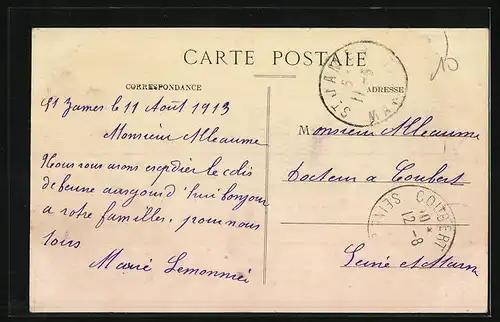 CARTE POSTALE
CORRESPONDANCE
ADRESSE
St James le 11 Août 1913
Monsieur Alleaume
Nous vous avons expedier le colis
de beurre aujourd'hui bonjour
a votre familles, pour nous
tous
Marie Lemonnier
Monsieur Alleaume
Docteur a Coubert
Seine et Marne
ST JAMES
11 -8
COUBERT
SEINE
12 -8